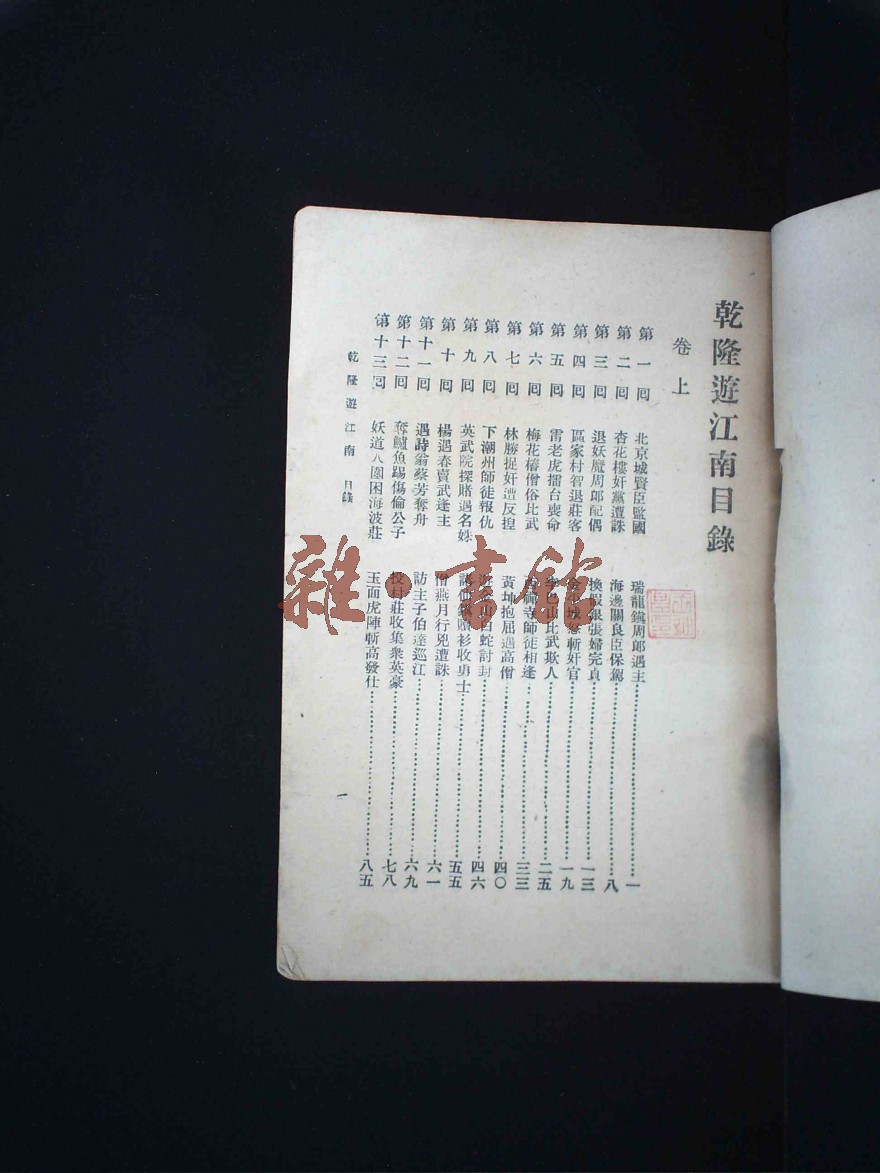 乾隆遊江南目錄
卷上
第一囘 北京城賢臣監國 瑞龍鎮周郎遇主 一
第二囘 杏花樓奸黨遭誅 海邊關良臣保駕 八
第三囘 退妖魔周郎配偶 換假銀張婦完貞 一三
第四囘 區家村智退莊客 金華城怒斬奸官 一九
第五囘 雷老虎擂台喪命 比武欺人 二五
第六囘 梅花樁僧俗比武 禪寺師徒相逢 三三
第七囘 林勝捉奸遭反揑 黃坤抱屈遇高僧 四〇
第八囘 下潮州師徒報仇 遊金山白蛇討封 四六
第九囘 英武院探賭遇名姝 鎮贈衫收勇士 五五
第十囘 楊遇春賣武逢主 僧燕月行兇遭誅 六一
第十一囘 遇詩翁蔡芳奪舟 訪主子伯達巡江 六九
第十二囘 奪鱸魚踢傷倫公子 投村莊收集衆英豪 七八
第十三囘 妖道八圍困海波莊 玉面虎陣斬高發仕 八五
乾隆遊江南 目錄
一
雜·書館